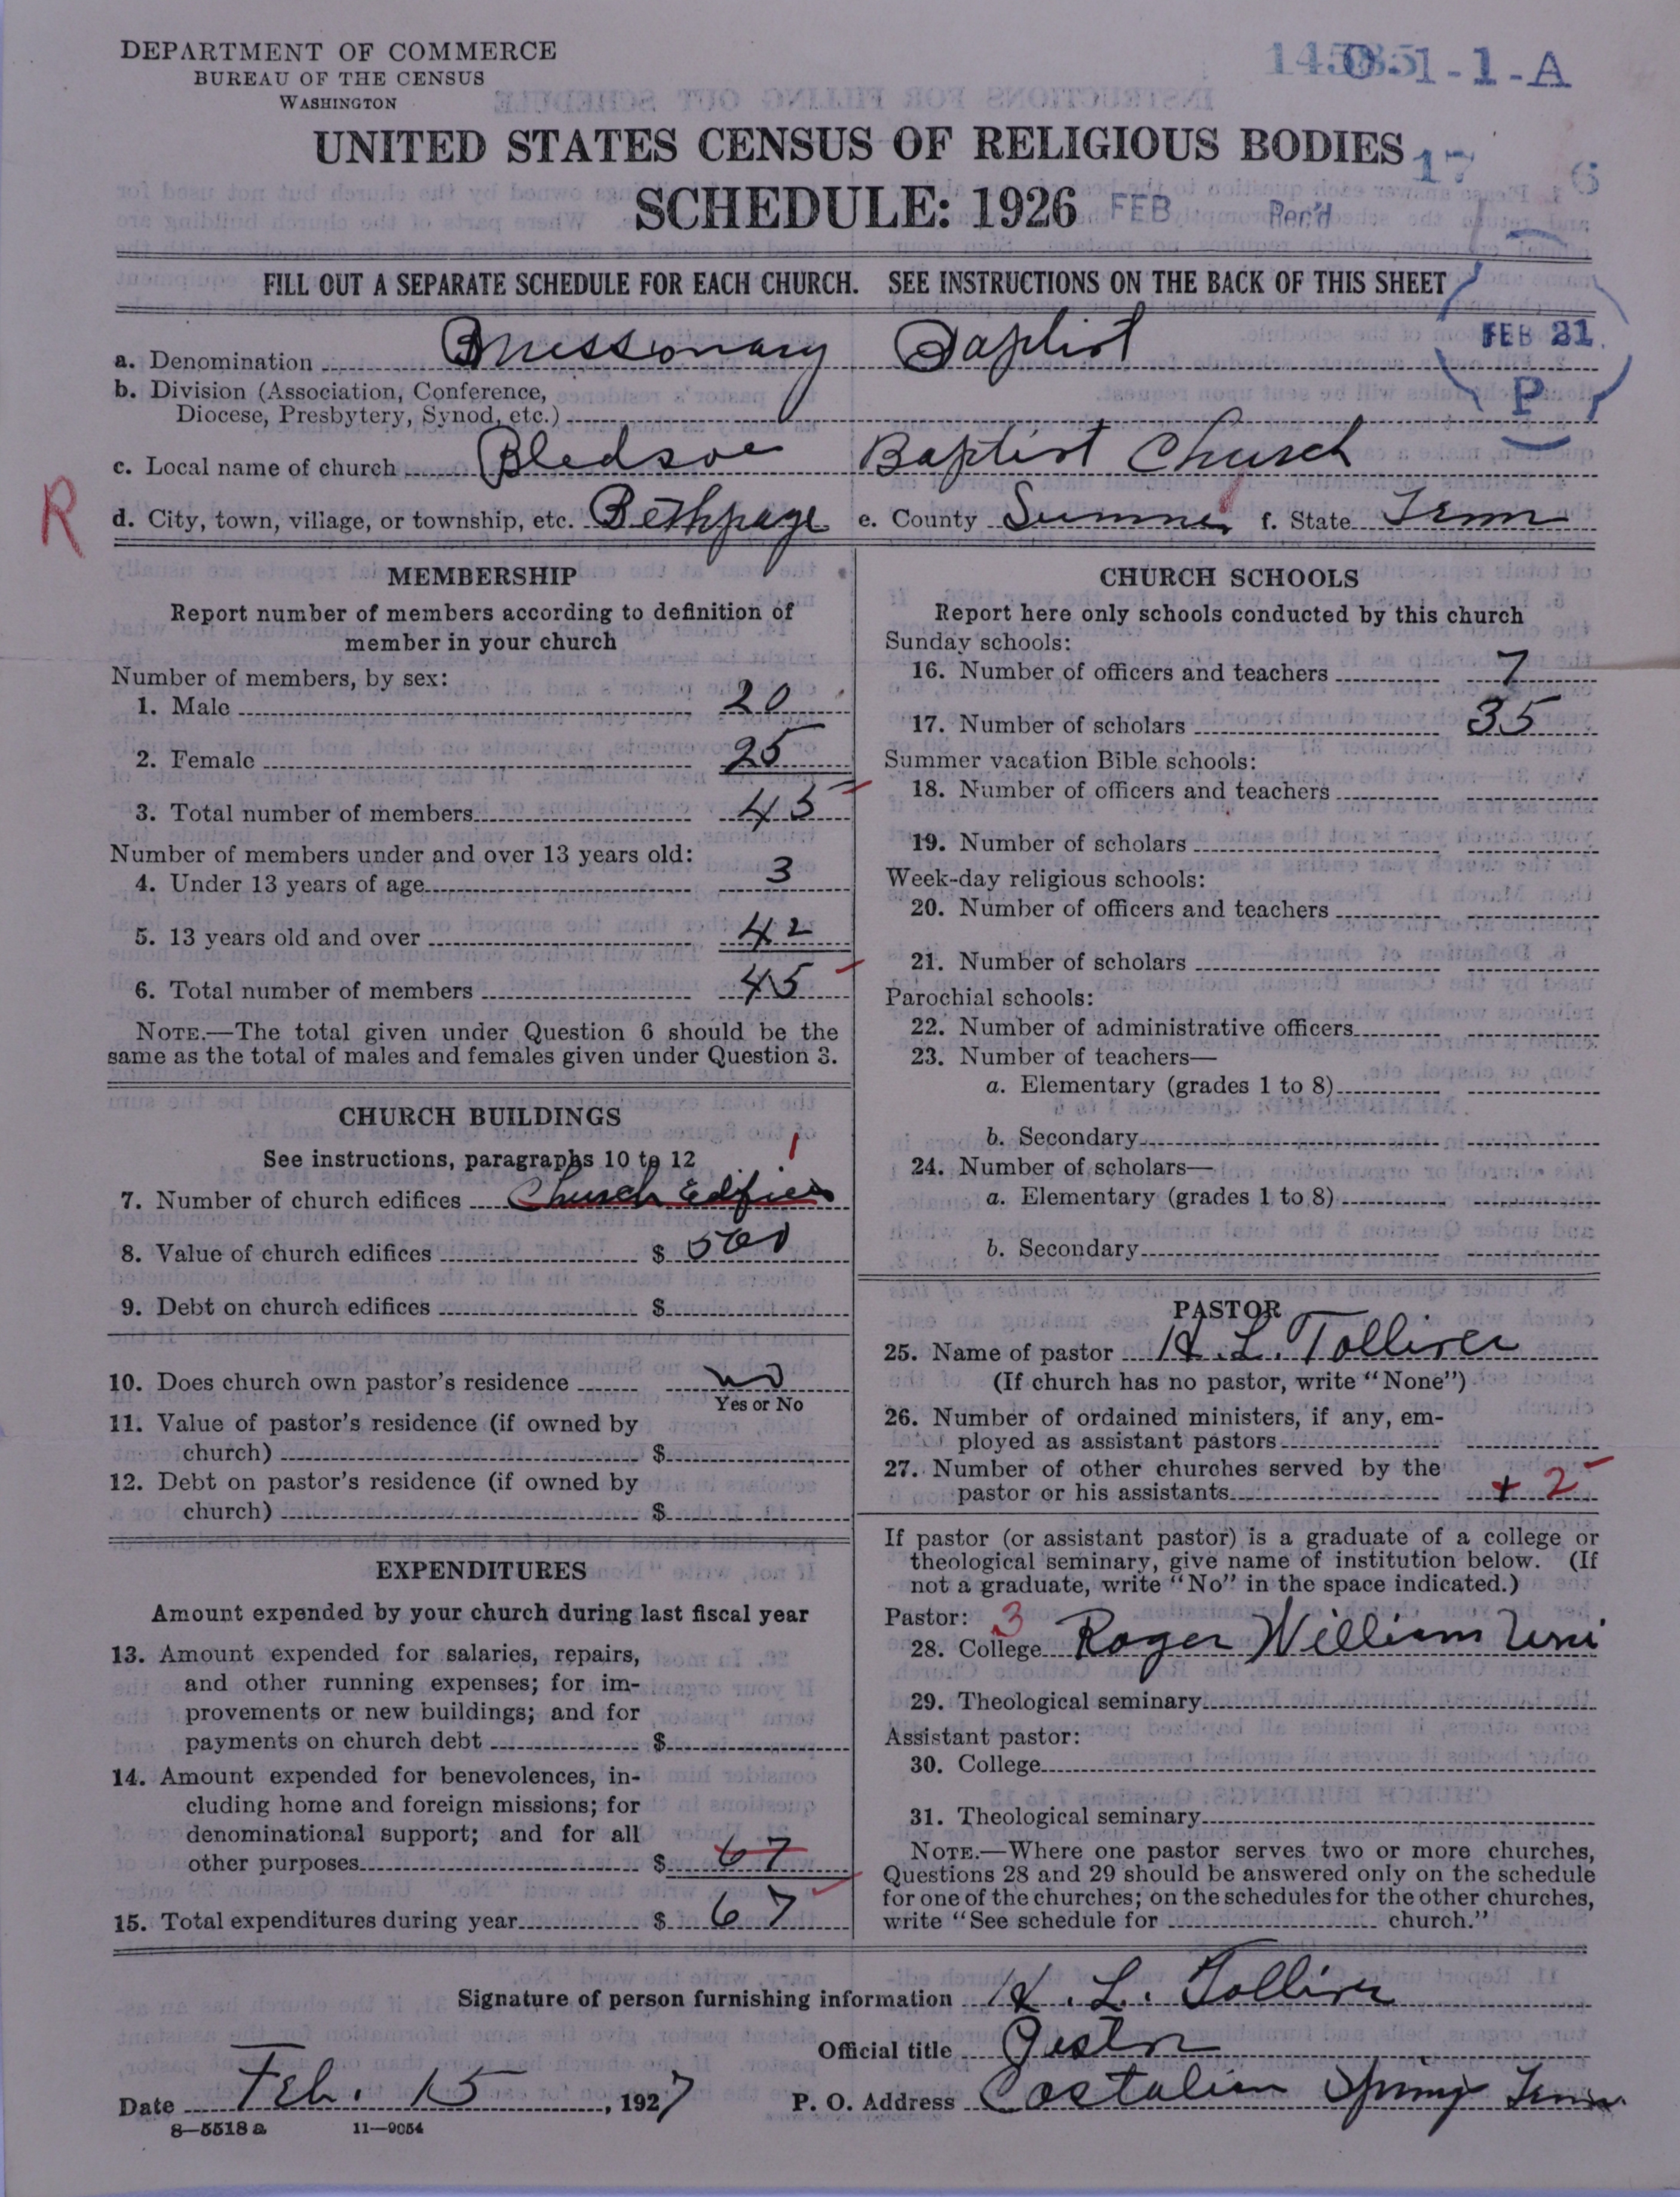 DEPARTMENT OF COMMERCE
BUREAU OF THE CENSUS
WASHINGTON
0-1-1-A
UNITED STATES CENSUS OF RELIGIOUS BODIES
SCHEDULE: 1926
FEB 17 Rec'd 6
FILL OUT A SEPARATE SCHEDULE FOR EACH CHURCH. SEE INSTRUCTIONS ON THE BACK OF THIS SHEET
FEB 21
P
a. Denomination Missonary Baptist
b. Division (Association, Conference,
Diocese, Presbytery, Synod, etc.)
c. Local name of church Bledsoe Baptist Church
R
d. City, town, village, or township, etc. Bethpage e. County Sumner f. State Tenn
MEMBERSHIP
Report number of members according to definition of
member in your church
Number of members, by sex:
1. Male 20
2. Female 25
3. Total number of members 45
Number of members under and over 13 years old:
4. Under 13 years of age 3
5. 13 years old and over 42
6. Total number of members 45
NOTE.—The total given under Question 6 should be the
same as the total of males and females given under Question 3.
CHURCH BUILDINGS
See instructions, paragraphs 10 to 12
1
7. Number of church edifices Church Edifices
8. Value of church edifices $ 500
9. Debt on church edifices $
10. Does church own pastor's residence no
Yes or No
11. Value of pastor's residence (if owned by
church) $
12. Debt on pastor's residence (if owned by
church) $
EXPENDITURES
Amount expended by your church during last fiscal year
13. Amount expended for salaries, repairs,
and other running expenses; for im-
provements or new buildings; and for
payments on church debt $
14. Amount expended for benevolences, in-
cluding home and foreign missions; for
denominational support; and for all
other purposes $ 67
15. Total expenditures during year $ 67
CHURCH SCHOOLS
Report here only schools conducted by this church
Sunday schools:
16. Number of officers and teachers 7
17. Number of scholars 35
Summer vacation Bible schools:
18. Number of officers and teachers
19. Number of scholars
Week-day religious schools:
20. Number of officers and teachers
21. Number of scholars
Parochial schools:
22. Number of administrative officers
23. Number of teachers—
a. Elementary (grades 1 to 8)
b. Secondary
24. Number of scholars—
a. Elementary (grades 1 to 8)
b. Secondary
PASTOR
25. Name of pastor H. L. Tolliver
(If church has no pastor, write "None")
26. Number of ordained ministers, if any, em-
ployed as assistant pastors
27. Number of other churches served by the
pastor or his assistants + 2
If pastor (or assistant pastor) is a graduate of a college or
theological seminary, give name of institution below. (If
not a graduate, write "No" in the space indicated.)
Pastor: 3
28. College Roger William Uni
29. Theological seminary
Assistant pastor:
30. College
31. Theological seminary
NOTE.—Where one pastor serves two or more churches,
Questions 28 and 29 should be answered only on the schedule
for one of the churches; on the schedules for the other churches,
write "See schedule for church."
Signature of person furnishing information H. L. Tolliver
Official title
Date Feb. 15, 1927 P. O. Address Castalian Spring Tenn.
8—5518 a 11—9054